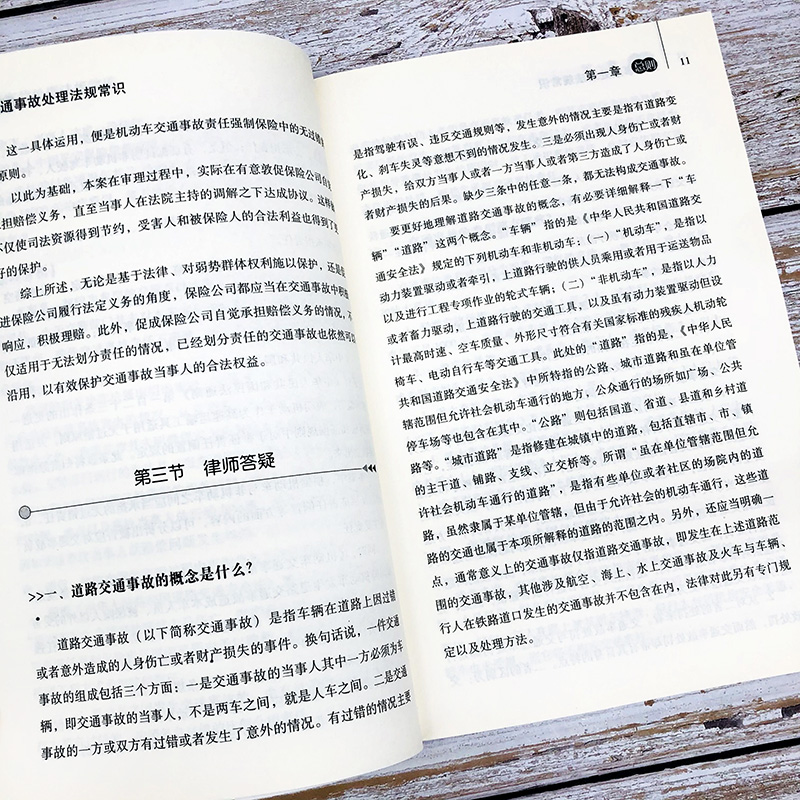 通事故处理法规常识
这一具体运用，便是机动车交通事故责任强制保险中的无过错
原则。
以此为基础，本案在审理过程中，实际在有意敦促保险公司自
担赔偿义务，直至当事人在法院主持的调解之下达成协议。这样
仅使司法资源得到节约，受害人和被保险人的合法利益也得到了
好的保护。
综上所述，无论是基于法律、对弱势群体权利施以保护，还是
进保险公司履行法定义务的角度，保险公司都应当在交通事故中
响应，积极理赔。此外，促成保险公司自觉承担赔偿义务的情况，
仅适用于无法划分责任的情况，已经划分责任的交通事故也依然可
沿用，以有效保护交通事故当事人的合法权益。
第三节 律师答疑
>>一、道路交通事故的概念是什么？
道路交通事故（以下简称交通事故）是指车辆在道路上因过错
或者意外造成的人身伤亡或者财产损失的事件。换句话说，一件交通
事故的组成包括三个方面：一是交通事故的当事人其中一方必须为车
辆，即交通事故的当事人，不是两车之间，就是人车之间。二是交通
事故的一方或双方有过错或者发生了意外的情况。有过错的情况主要
第一章 总则 11
是指驾驶有误、违反交通规则等，发生意外的情况主要是指有道路变
化、刹车失灵等意想不到的情况发生。三是必须出现人身伤亡或者财
产损失，给双方当事人或者一方当事人或者第三方造成了人身伤亡或
者财产损失的后果。缺少三条中的任意一条，都无法构成交通事故。
要更好地理解道路交通事故的概念，有必要详细解释一下“车
辆”“道路”这两个概念。“车辆”指的是《中华人民共和国道路交
通安全法》规定的下列机动车和非机动车：（一）“机动车”，是指以
动力装置驱动或者牵引，上道路行驶的供人员乘用或者用于运送物品
以及进行工程专项作业的轮式车辆；（二）“非机动车”，是指以人力
或者畜力驱动，上道路行驶的交通工具，以及虽有动力装置驱动但设
计最高时速、空车质量、外形尺寸符合有关国家标准的残疾人机动轮
椅车、电动自行车等交通工具。此处的“道路”指的是，《中华人民
共和国道路交通安全法》中所特指的公路、城市道路和虽在单位管
辖范围但允许社会机动车通行的地方，公众通行的场所如广场、公共
停车场等也包含在其中。“公路”则包括国道、省道、县道和乡村道
路等。“城市道路”是指修建在城镇中的道路，包括直辖市、市、镇
的主干道、辅路、支线、立交桥等。所谓“虽在单位管辖范围但允
许社会机动车通行的道路”，是指有些单位或者社区的场院内的道
路，虽然隶属于某单位管辖，但由于允许社会的机动车通行，这些道
路的交通也属于本项所解释的道路的范围之内。另外，还应当明确一
点，通常意义上的交通事故仅指道路交通事故，即发生在上述道路范
围的交通事故，其他涉及航空、海上、水上交通事故及火车与车辆、
行人在铁路道口发生的交通事故并不包含在内，法律对此另有专门规
定以及处理方法。